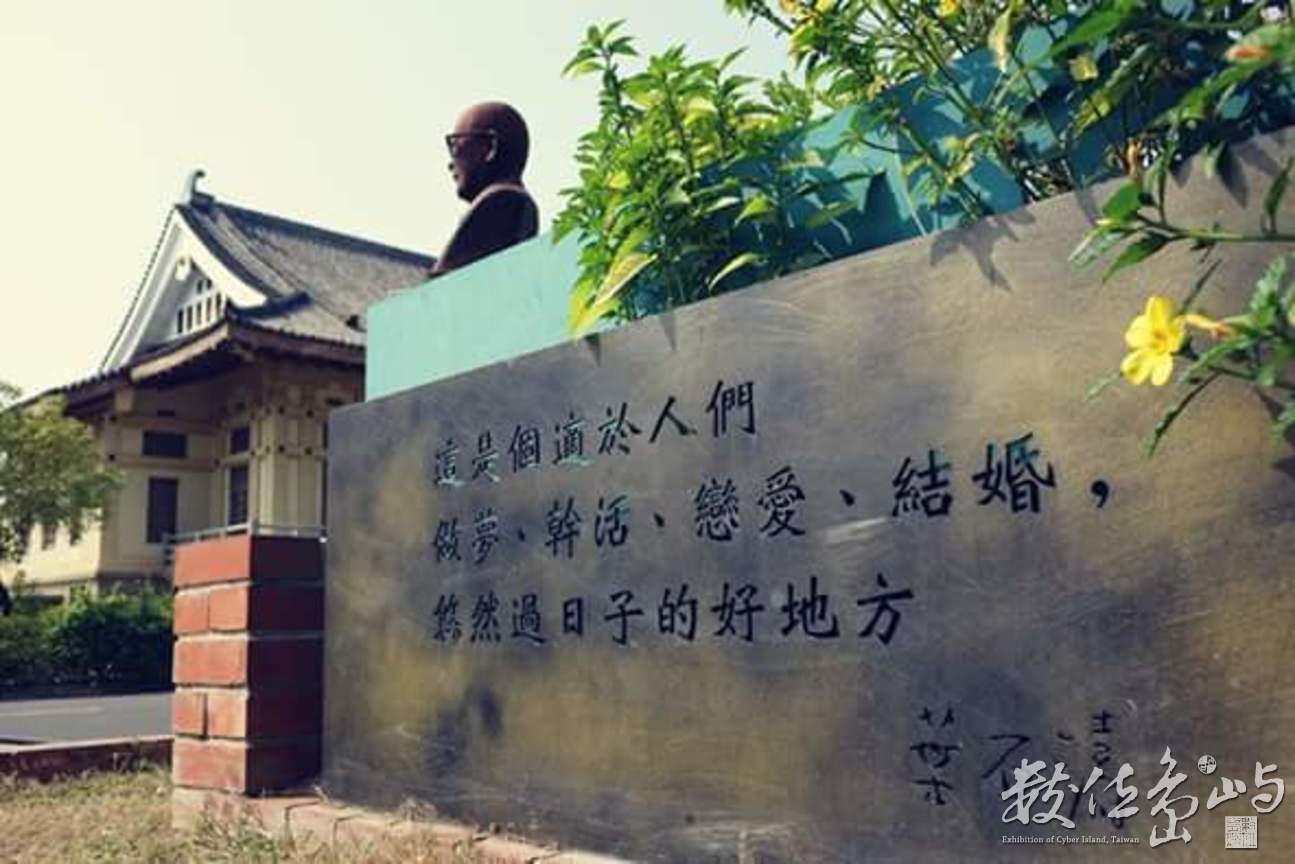 這是個適於人們
做夢、幹活、戀愛、結婚，
悠然過日子的好地方
葉石濤
數位島嶼
Exhibition of Cyber Island, Taiwan